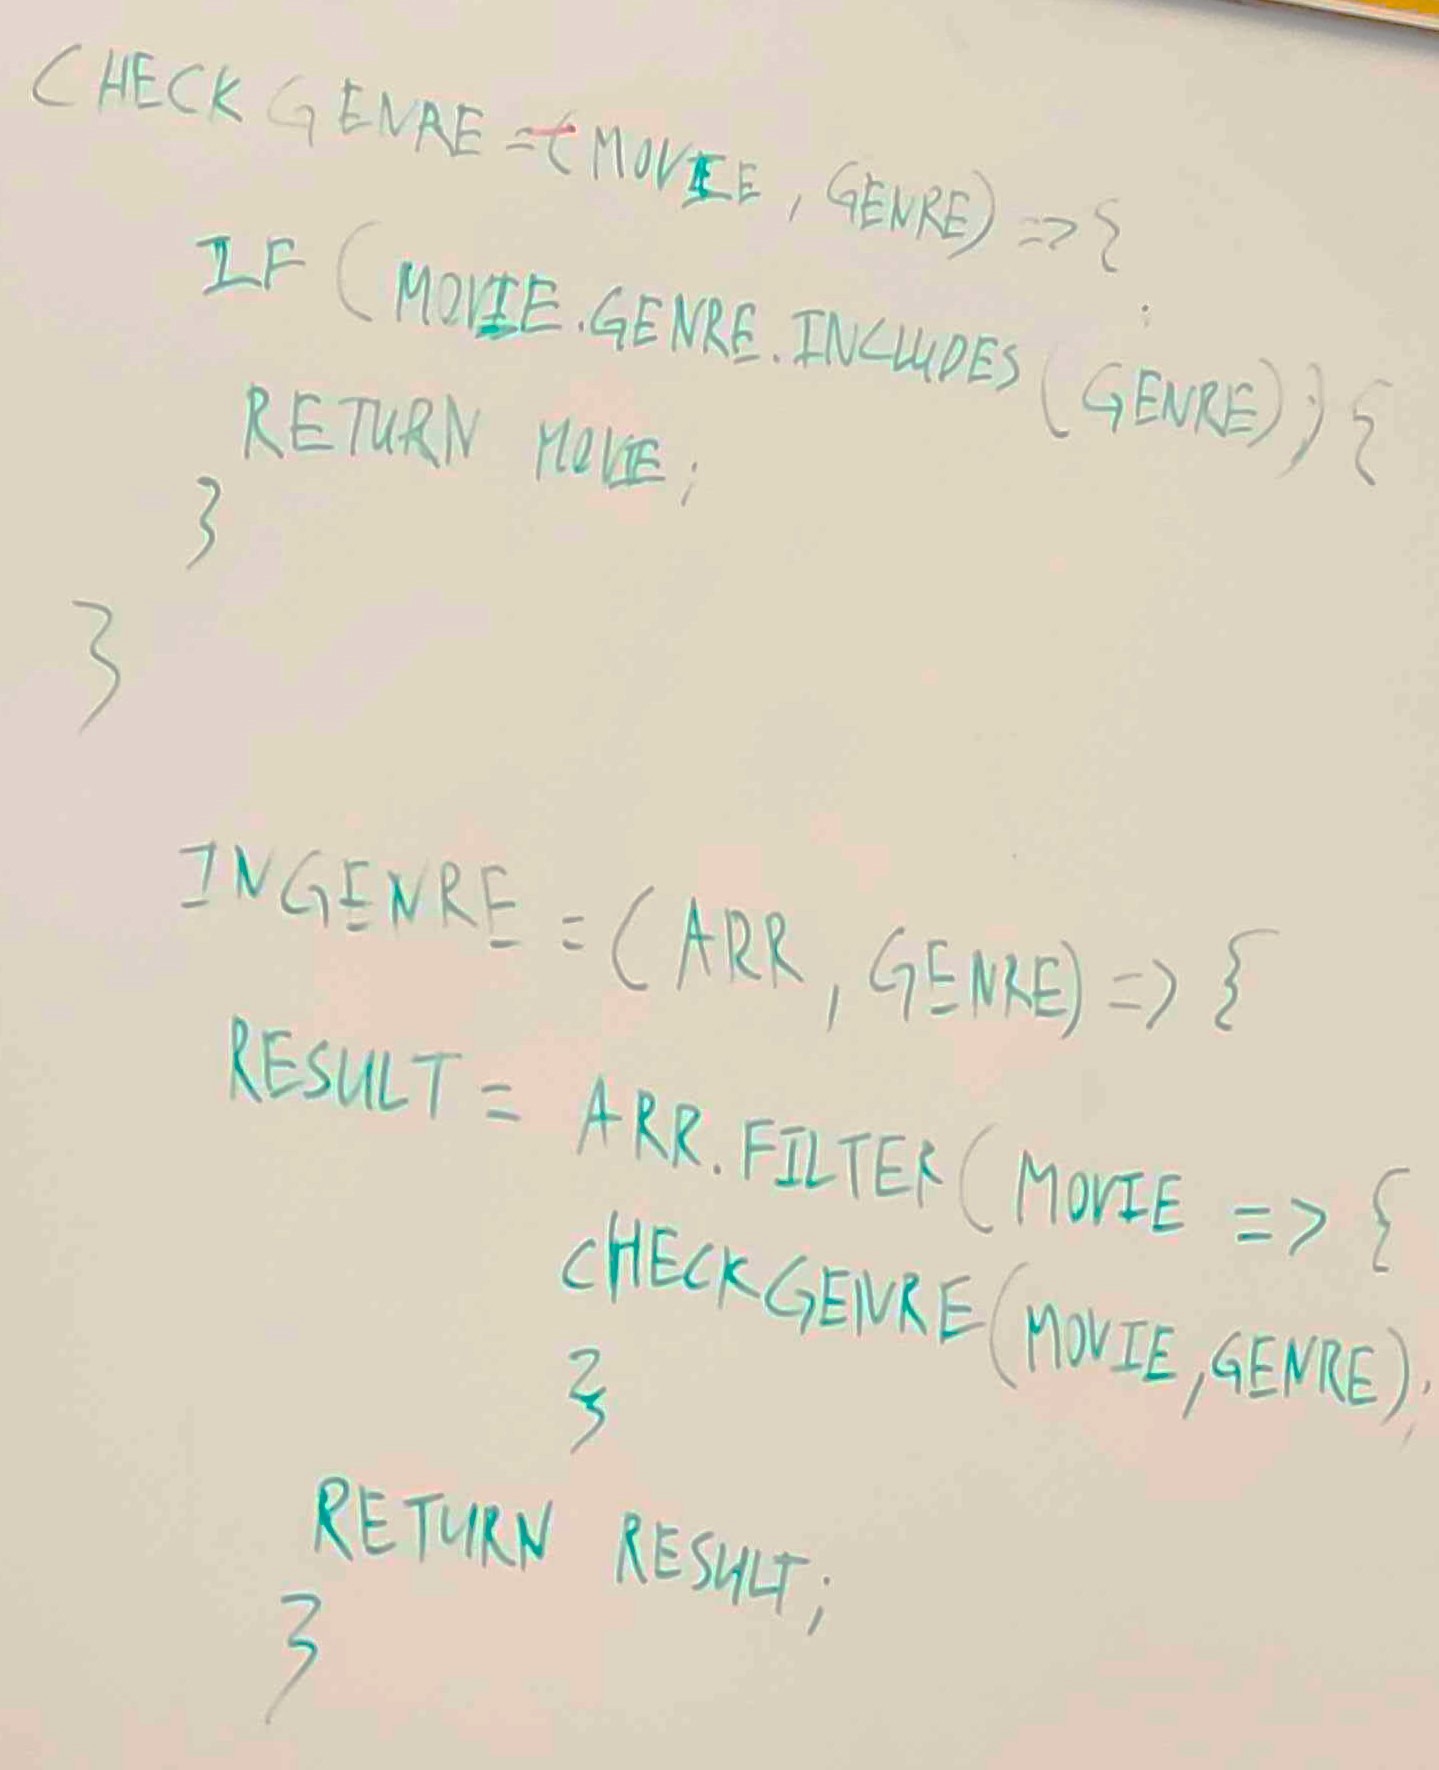 CHECKGENRE = (MOVIE, GENRE) => {
IF (MOVIE.GENRE.INCLUDES(GENRE)) {
RETURN MOVIE;
}
}
INGENRE = (ARR, GENRE) => {
RESULT = ARR.FILTER(MOVIE => {
CHECKGENRE(MOVIE, GENRE);
}
RETURN RESULT;
}